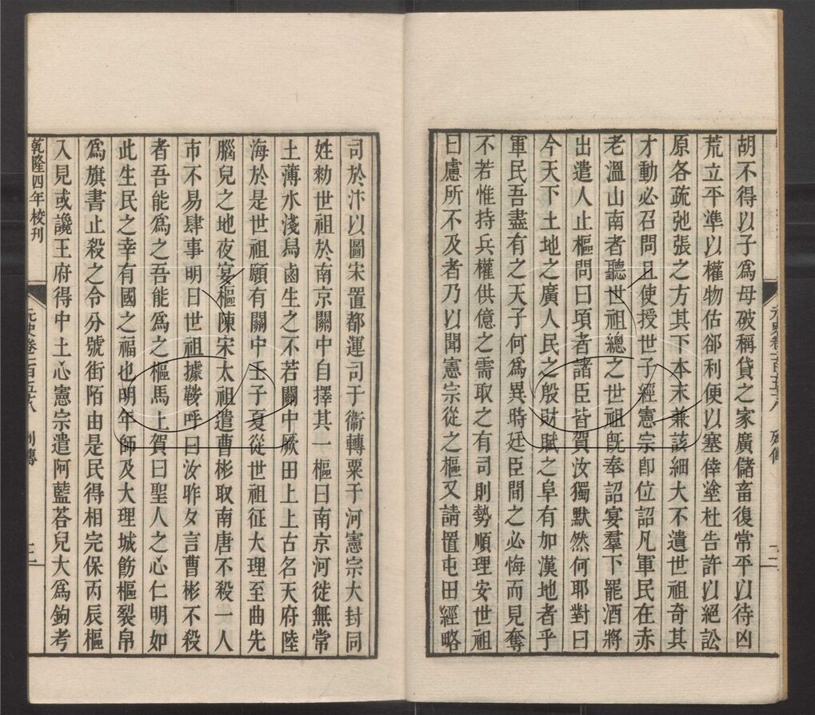 胡不得以子爲母破稱貸之家廣儲畜復常平以待凶
荒立平準以權物估郤利便以塞倖塗杜告訐以絕訟
原各疏弛張之方其下本末兼該細大不遺世祖奇其
才動必召問且使授世子經憲宗卽位詔凡軍民在赤
老溫山南者聽世祖總之世祖旣奉詔宴羣下罷酒將
出遣人止樞問曰頃者諸臣皆賀汝獨默然何耶對曰
今天下土地之廣人民之殷財賦之阜有加漢地者乎
軍民吾盡有之天子何爲異時廷臣間之必悔而見奪
不若惟持兵權供億之需取之有司則勢順理安世祖
曰慮所不及者乃以聞憲宗從之樞又請置屯田經略
元史卷一百五十八 列傳
司於汴以圖宋置都運司于衞轉粟于河憲宗大封同
姓勑世祖於南京關中自擇其一樞曰南京河徙無常
土薄水淺舄鹵生之不若關中厥田上上古名天府陸
海於是世祖願有關中壬子夏從世祖征大理至曲先
腦兒之地夜宴樞陳宋太祖遣曹彬取南唐不殺一人
市不易肆事明日世祖據鞍呼曰汝昨夕言曹彬不殺
者吾能爲之吾能爲之樞馬上賀曰聖人之心仁明如
此生民之幸有國之福也明年師及大理城飭樞裂帛
爲旗書止殺之令分號街陌由是民得相完保丙辰樞
入見或讒王府得中土心憲宗遣阿藍荅兒大爲鉤考
乾隆四年校刊
元史卷一百五十八 列傳